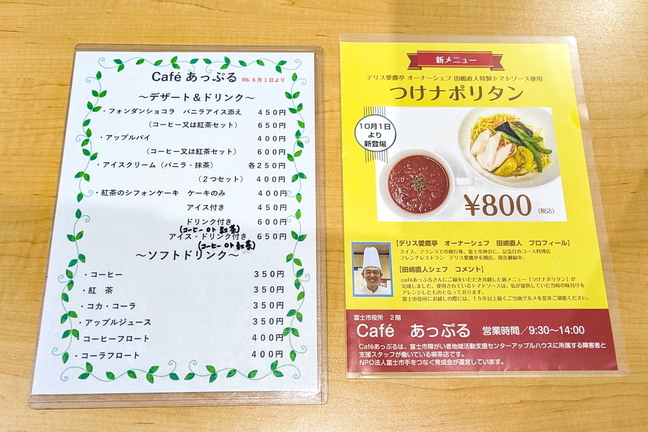 Café あっぷる R6.6月3日より
～デザート＆ドリンク～
・フォンダンショコラ バニラアイス添え 450円
(コーヒー又は紅茶セット) 650円
・アップルパイ 400円
(コーヒー又は紅茶セット) 600円
・アイスクリーム (バニラ・抹茶) 各250円
(2つセット) 400円
・紅茶のシフォンケーキ ケーキのみ 400円
アイス付き 450円
ドリンク付き 600円
(コーヒー or 紅茶)
アイス・ドリンク付き 650円
(コーヒー or 紅茶)
～ソフトドリンク～
・コーヒー 350円
・紅 茶 350円
・コカ・コーラ 350円
・アップルジュース 350円
・コーヒーフロート 400円
・コーラフロート 400円
新メニュー
デリス愛鷹亭 オーナーシェフ 田嶋直人特製トマトソース使用
つけナポリタン
10月1日
より
新登場
¥800 (税込)
【デリス愛鷹亭 オーナーシェフ 田嶋直人 プロフィール】
スイス、フランスでの修行後、富士市神谷に、記念日のコース料理店
フレンチレストラン デリス愛鷹亭を開店。現在継続中。
【田嶋直人シェフ コメント】
caféあっぷるさんにご縁をいただき共創した新メニュー「つけナポリタン」が
完成しました。使用されているトマトソースは、私が提供していた当時の味付けを
アレンジしたものとなっております。
富士市役所にお越しの際には、15年以上続くご当地グルメを是非ご堪能ください。
富士市役所 2階
Café あっぷる 営業時間／9:30～14:00
Caféあっぷるは、富士市障がい者地域活動支援センターアップルハウスに所属する障害者と
支援スタッフが働いている喫茶店です。
NPO法人富士市手をつなぐ育成会が運営しています。